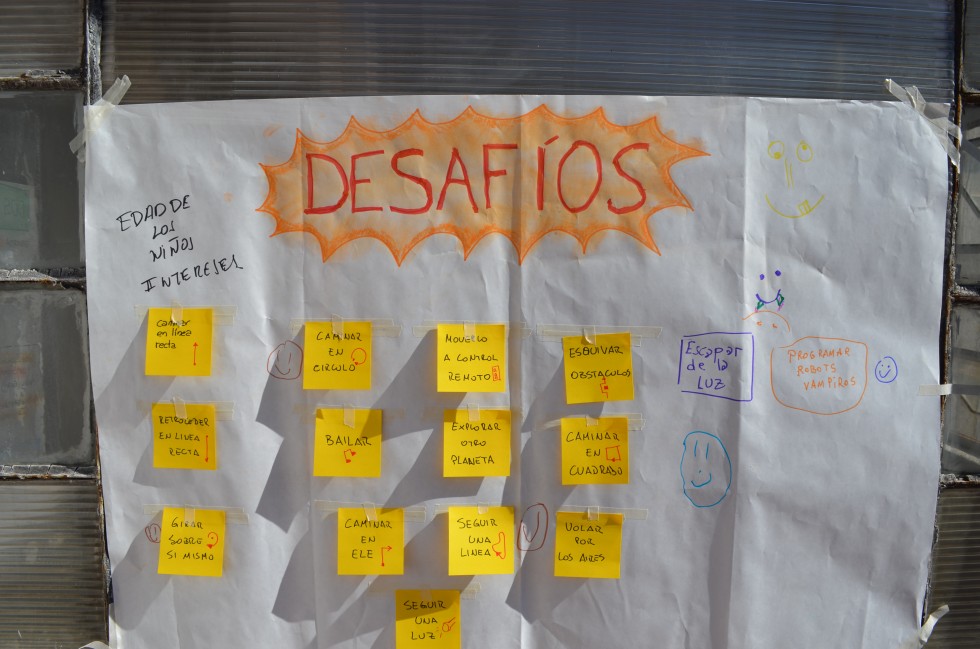 DESAFÍOS
EDAD DE
LOS
NIÑOS
INTERESES
caminar
en línea
recta
CAMINAR
EN
CIRCULO
MOVERLO
A CONTROL
REMOTO
ESQUIVAR
OBSTACULOS
Escapar
de la
LUZ
PROGRAMAR
ROBOTS
VAMPIROS
RETROCEDER
EN LINEA
RECTA
BAILAR
EXPLORAR
OTRO
PLANETA
CAMINAR
EN
CUADRADO
GIRAR
SOBRE
SI MISMO
CAMINAR
EN
ELE
SEGUIR
UNA
LINEA
VOLAR
POR
LOS AIRES
SEGUIR
UNA
LUZ